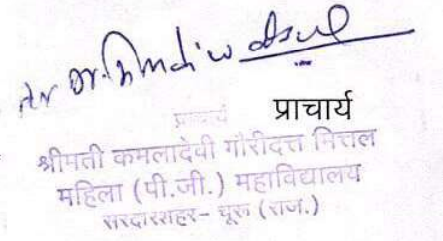 प्राचार्य
प्राचार्य
श्रीमती कमलादेवी गौरीदत्त मित्तल
महिला (पी.जी.) महाविद्यालय
सरदारशहर- चूरू (राज.)